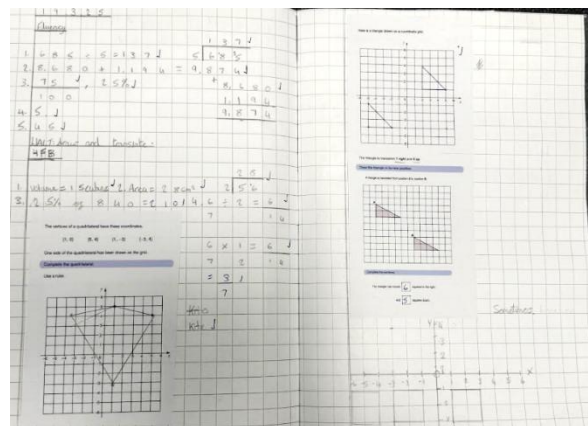 1 9 3 2 5
Fluency
1 3 7
1. 6 8 5 ÷ 5 = 1 3 7
5 6 8 5
2. 8.6 8 0 + 1.1 9 4 = 9.8 7 4
3. 7 5 , 2 5 %
1 0 0
8.6 8 0
1.1 9 4
9.8 7 4
4. 5
5. 4 5
draw and translate.
4F8
2 8
1. Volume = 1 5 cubes 2. Area = 2 8 cm²
2 5 6
3. 2 5 % of 8 4 0 = 2 1 0 4. 6 ÷ 2 = 6
7 1 4
6 × 1 = 6
7 2 1 4
= 3
7
The vertices of a quadrilateral have these coordinates.
One side of the quadrilateral has been drawn on the grid.
Complete the quadrilateral
Use a ruler.
Kite
Here is a triangle drawn on a coordinate grid.
The triangle is translated 7 right and 5 up.
Draw the triangle in its new position.
A triangle is translated from position A to position B.
Complete the sentence.
The triangle has moved 6 squares to the right
and 5 squares down.
Sometimes
-6 -5 -4 -3 -2 -1 1 2 3 4 5 6 x